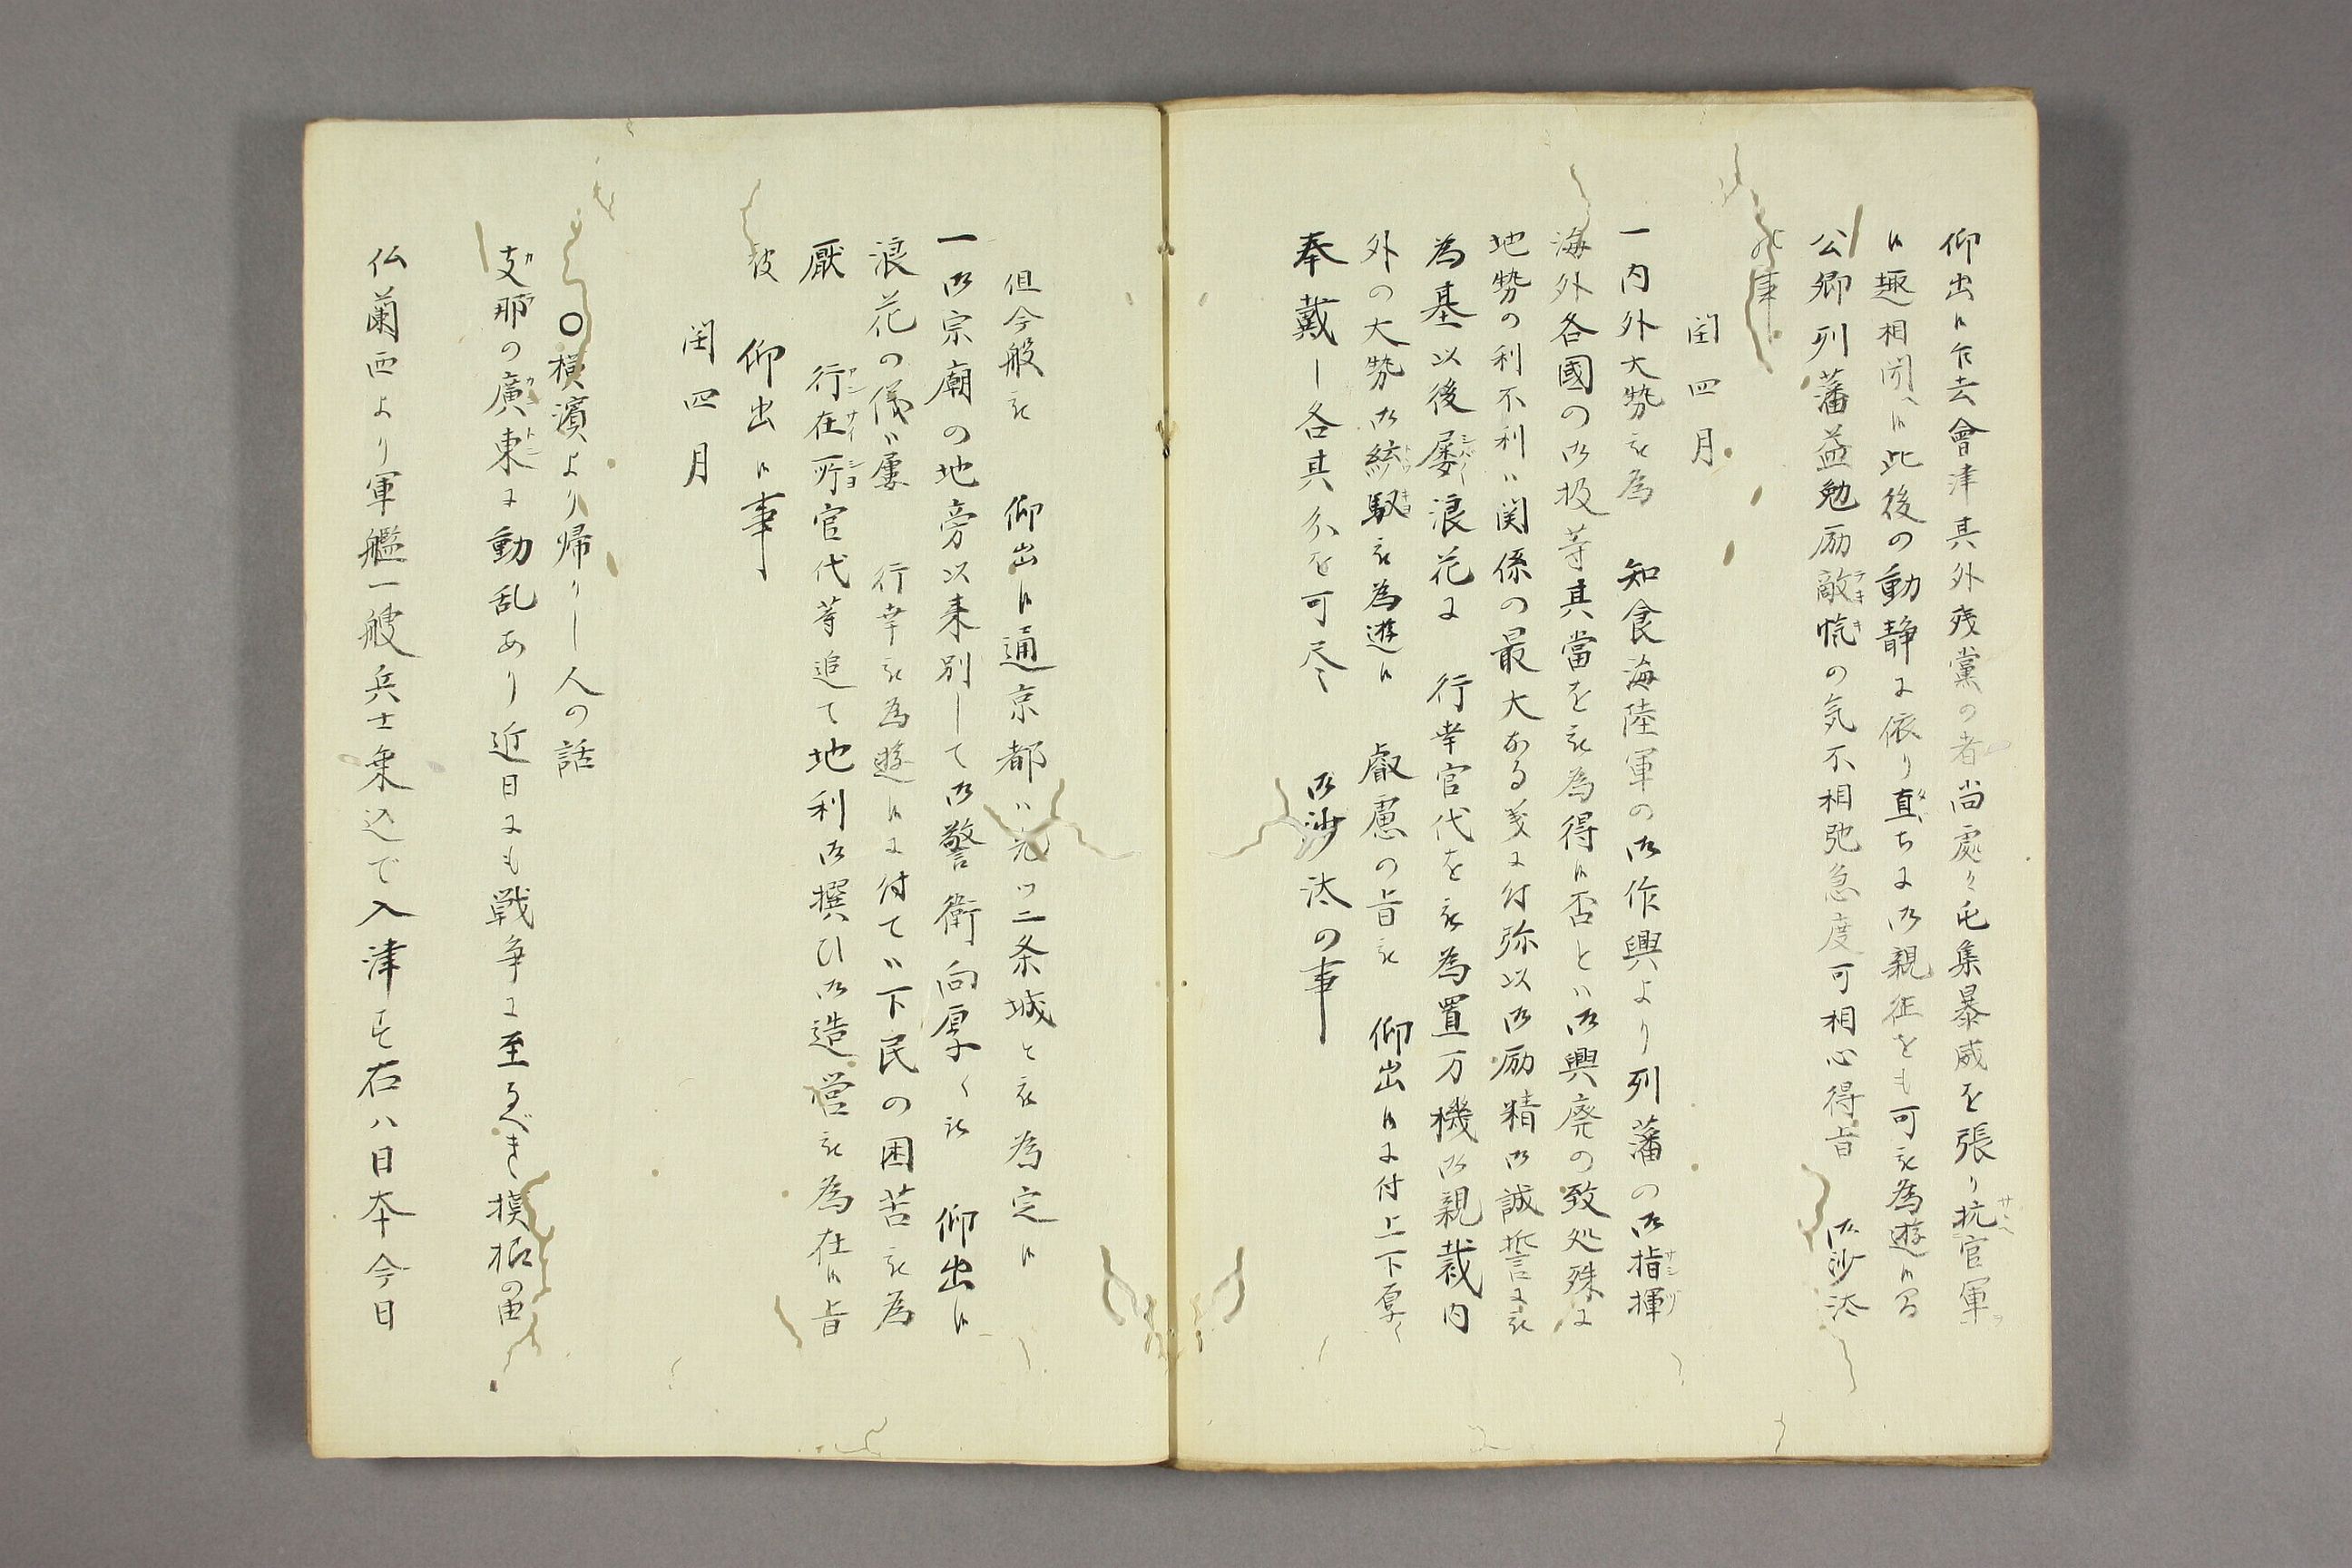 仰出候乍去會津其外残黨の者尚處々屯集暴威を張り抗官軍
候趣相聞へ候此後の動静に依り直ちに御親征をも可被為遊候間
公卿列藩益勉励敵愾の気不相弛急度可相心得旨　御沙汰
の事
閏四月
一内外大勢被為　知食海陸軍の御作興より列藩の御指揮
海外各國の御扱等其當を被為得候否とハ御興廃の致処殊に
地勢の利不利ハ関係の最大なる義に付弥以御励精御誠誓に被
為基以後屡浪花に　行幸官代を被為置万機御親裁内
外の大勢御統馭被為遊候　叡慮の旨被　仰出候に付上下厚く
奉戴し各其分を可尽　御沙汰の事
但今般被　仰出候通京都ハ先ツ二条城と被為定候
一御宗廟の地旁以来別して御警衛向厚く被　仰出候
浪花の儀ハ屡　行幸被為遊候に付てハ下民の困苦被為
厭　行在所官代等追て地利御撰ひ御造営被為在候旨
被　仰出候事
閏四月
〇横濱より帰りし人の話
支那の廣東に動乱あり近日にも戦争に至るべき模様の由
仏蘭西より軍艦一艘兵士乗込で入津す右ハ日本今日